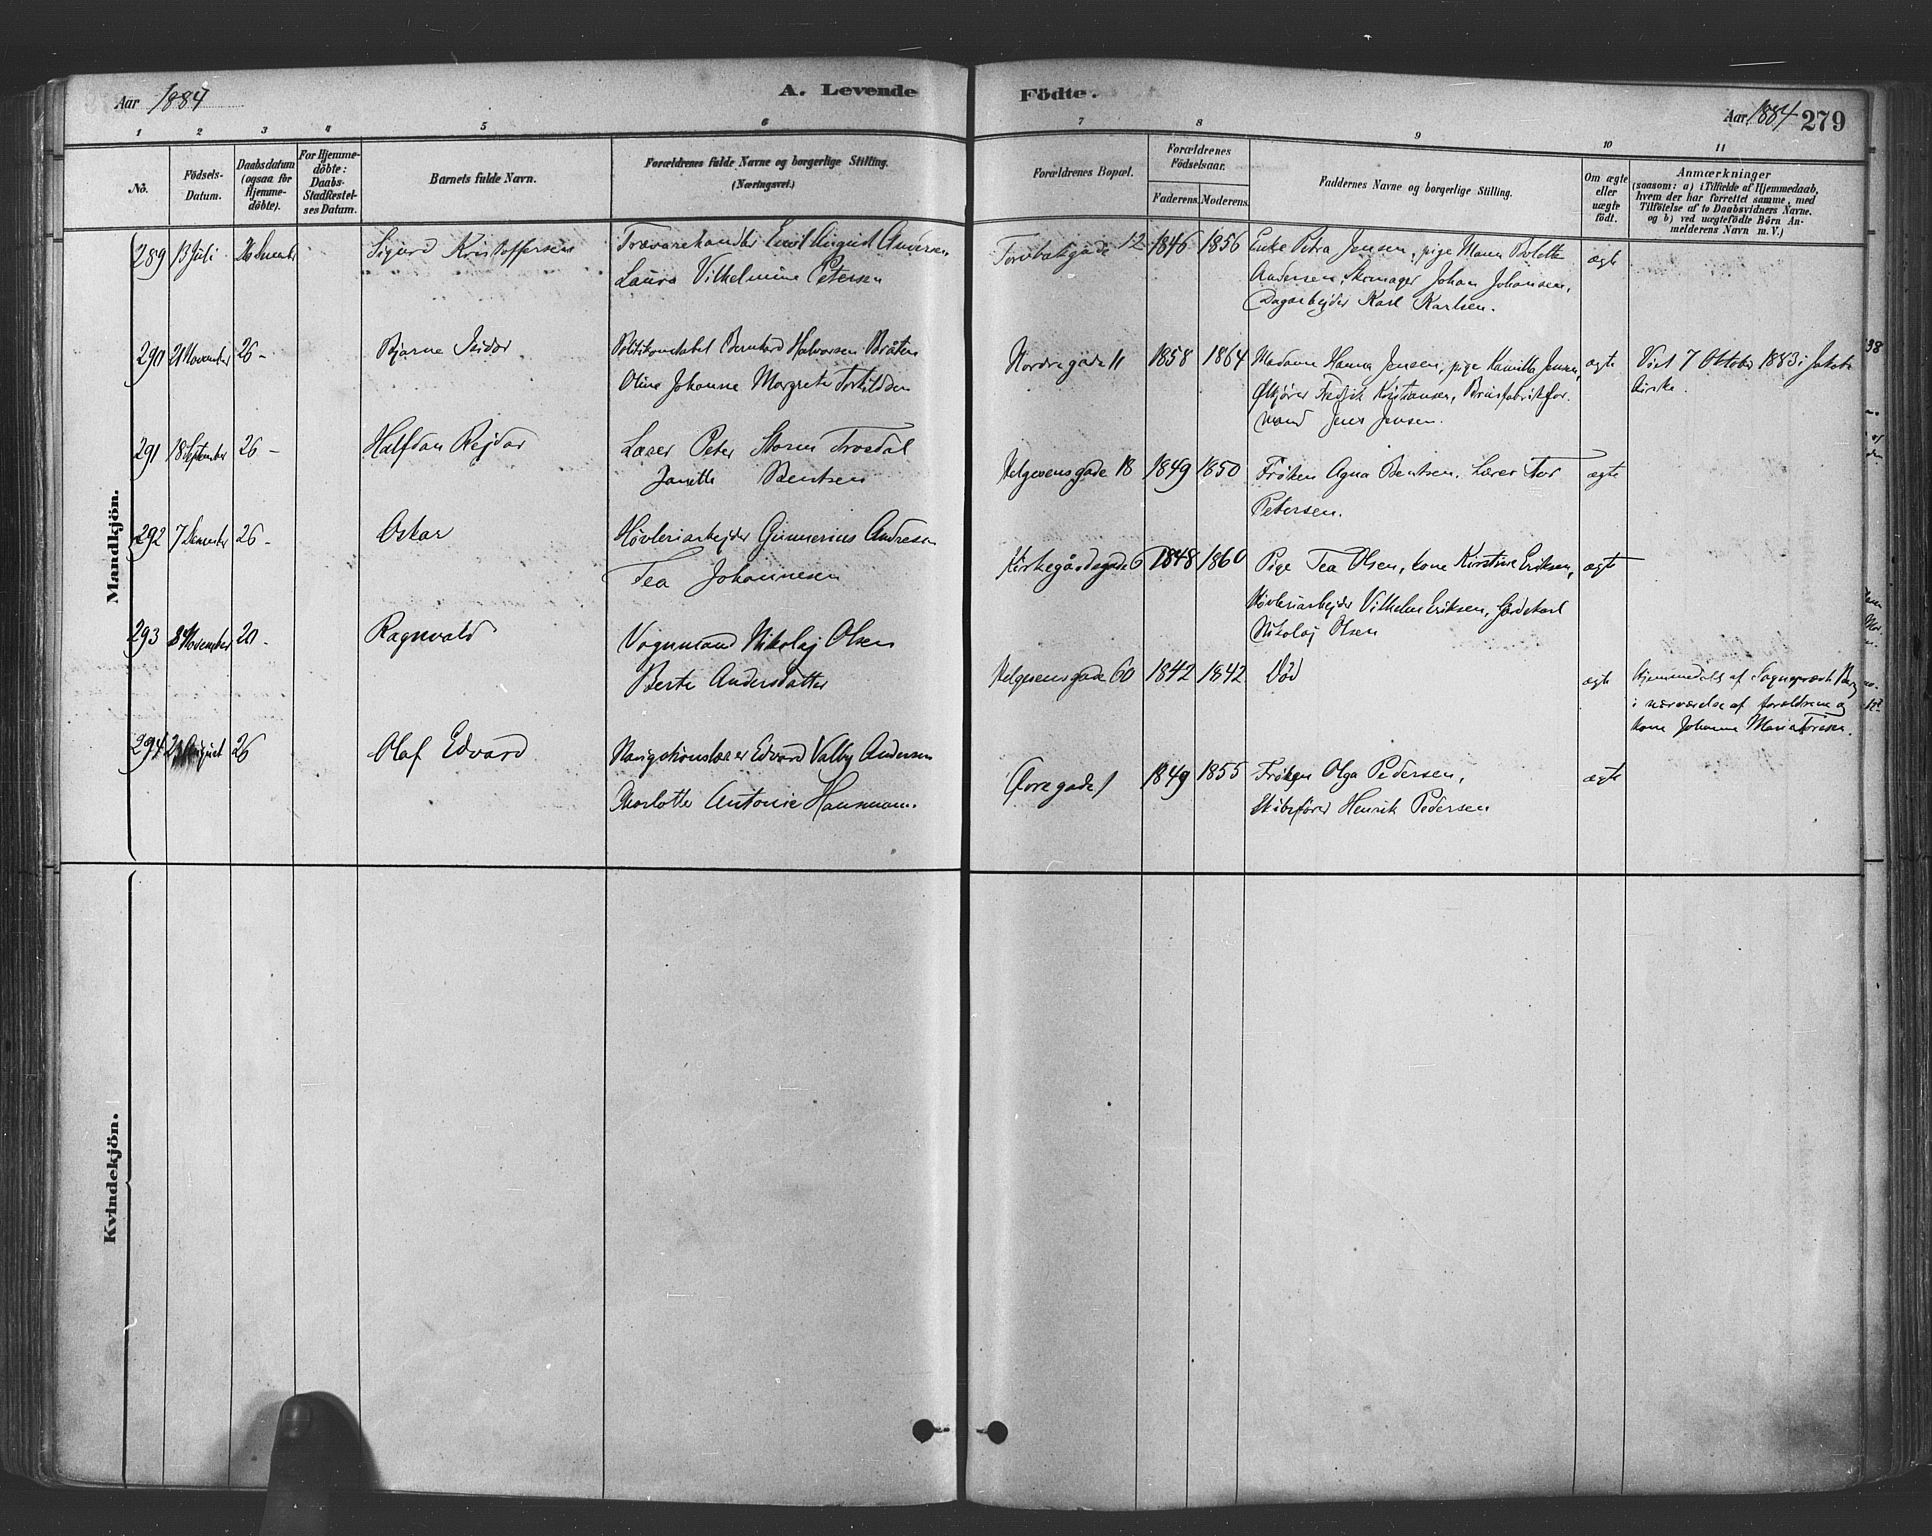 Aar 1884
A. Levende Födte.
Aar 1884 279
1 2 3 4 5 6 7 8 9 10 11
No.
Födsels-
Datum.
Daabsdatum
(ogsaa for
Hjemme-
döbte).
For Hjemme-
döbte:
Daabs-
Stadfæstel-
ses Datum.
Barnets fulde Navn.
Forældrenes fulde Navne og borgerlige Stilling.
(Næringsvei.)
Forældrenes Bopæl.
Forældrenes
Födselsaar.
Faderens. Moderens.
Faddernes Navne og borgerlige Stilling.
Om ægte
eller
uægte
födt.
Anmærkninger
(saasom: a) i Tilfælde af Hjemmedaab,
hvem der har forrettet samme, med
Tilföielse af to Daabsvidners Navne.
og b) ved uægtefödte Börn An-
melderens Navn m. V.)
Mandkjön.
289 13 Juli 26 December Sigurd Kristoffersen
Trævarehandler Emil August Andersen
Laura Vilhelmine Petersen
12 1846 1856 Enke Petra Jensen, pige
Andersen, Skomager Johan Johansen,
Dagarbejder Karl Karlsen.
ægte
290 21 November 26 - Bjarne Isidor
Politikonstabel Bernhard Halvorsen Bråten
Oline Johanne Margrete Torkildsen
Nordregade 11 1858 1864 Madame Hanna Jensen, pige Kamilla Jensen,
Ølkjører Fredrik Kristiansen,
mand Jens Jensen.
ægte
Viet 7 Oktober 1883 i Jakobs
kirke.
291 18 September 26 - Halfdan Rejdar
Lærer Peter Storm Trosdal
Janette Bentsen
Helgesensgade 18 1849 1850 Frøken Agna Bentsen. Lærer Tor
Petersen.
ægte
292 7 December 26 - Oskar
Høvleriarbejder Gunnerius Andresen
Tea Johannesen
Kirkegårdsgade 6 1848 1860 Pige Tea Olsen, kone Kirstine Eriksen,
Høvleriarbejder Vilhelm Eriksen, Gårdskarl
Nikolaj Olsen
ægte
293 8 November 20 - Ragnvald
Vognmand Nikolaj Olsen
Berte Andersdatter
Helgesensgade 60 1842 1842 Død
ægte
Hjemmedøbt af Sognepræst
i nærværelse af forældrene og
kone Johanne Maria Toresen.
294 August 26 Olaf Edvard
Navigationslærer Edvard Valby Andersen
Charlotte Antonie Hansmann.
1 1849 1855 Frøken Olga Pedersen,
Skibsfører Henrik Pedersen
ægte
Kvindekjön.